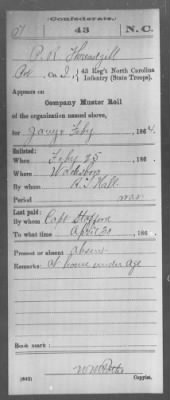 (Confederate.)
T 43 N.C.
P. R. Threadgill
Pvt, Co. I, 43 Reg't North Carolina Infantry (State Troops).
Appears on
Company Muster Roll
of the organization named above,
for Jany & Feby, 1864.
Enlisted:
When Feby 25, 186
Where Wadesboro
By whom
Period war
Last paid:
By whom Capt Stafford
To what time April 30, 186
Present or absent Absent
Remarks: At home under age
Book mark:
(642) Copyist.